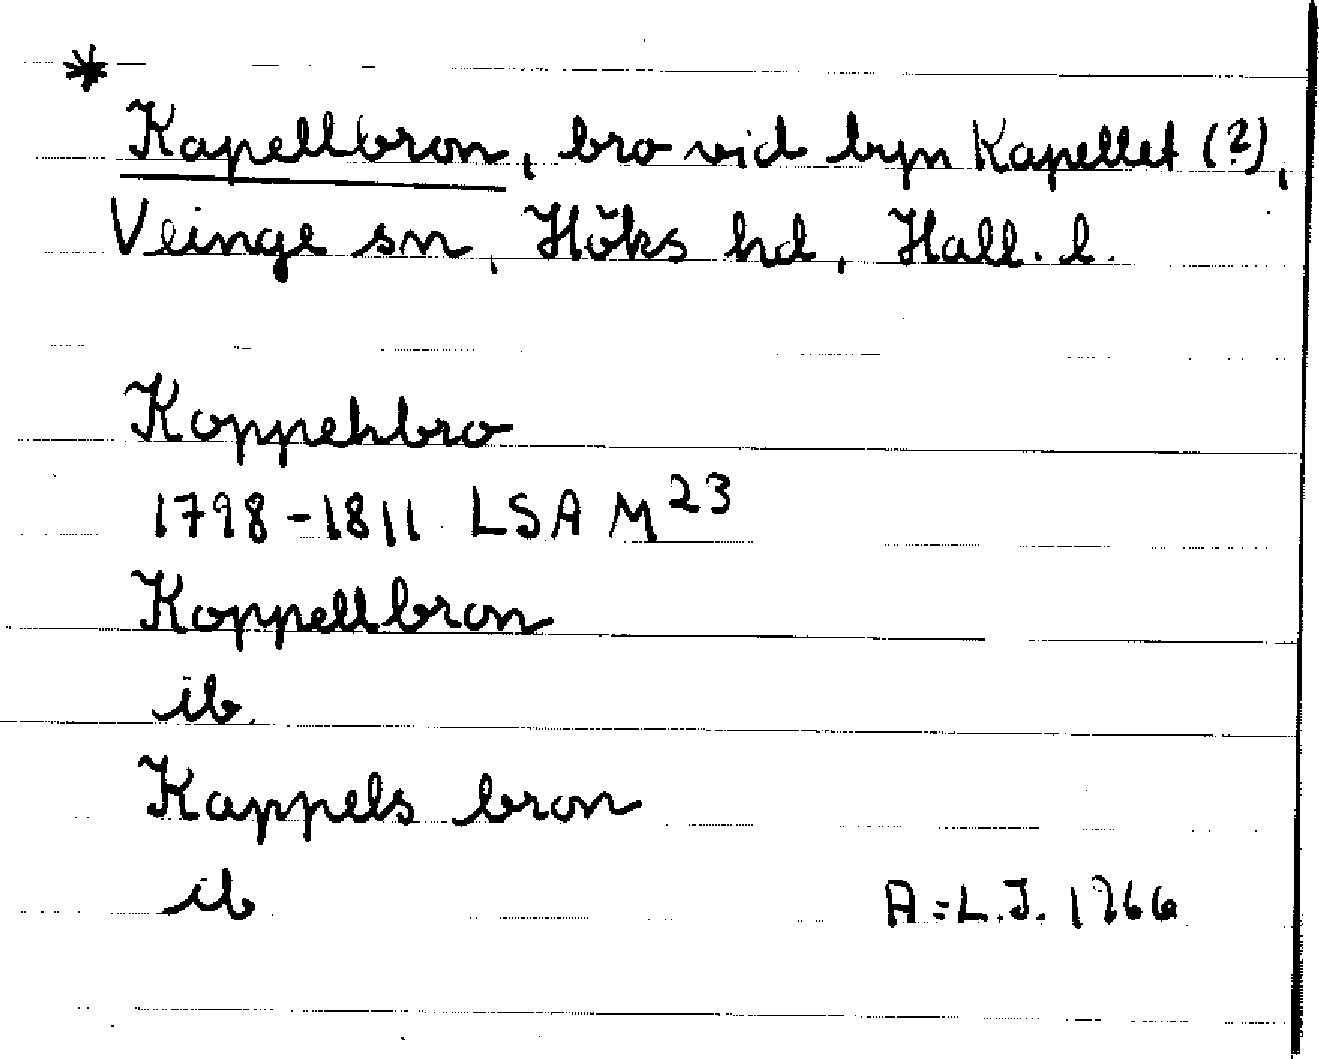 *
Kapellbron, bro vid byn Kapellet (?),
Veinge sn, Höks hd, Hall. l.
Koppehbro
1798-1811 LSA M 23
Koppellbron
ib.
Kappels bron
ib
A:L.J. 1966